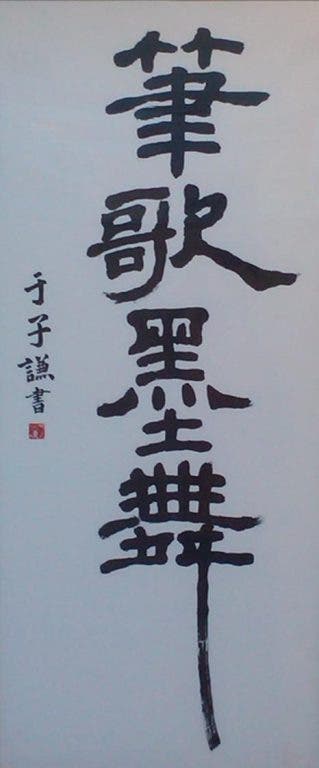 筆歌墨舞
于子謙書